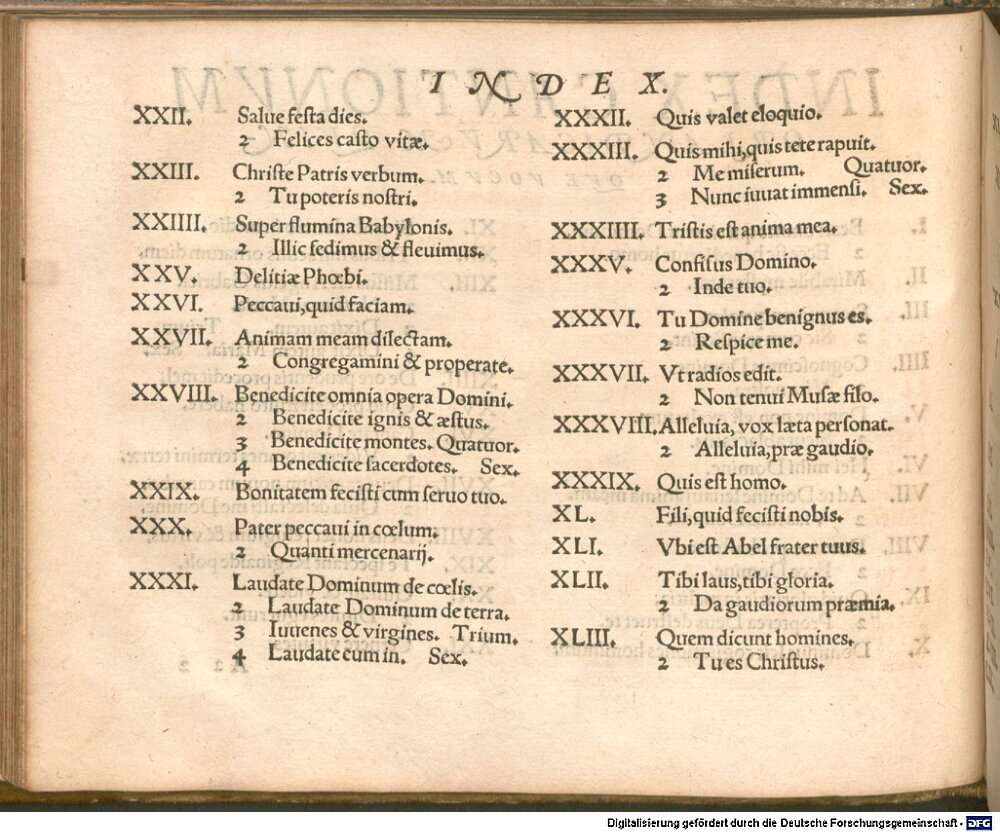 INDEX.
XXII. Salue festa dies.
2 Felices casto vitæ.
XXIII. Christe Patris verbum.
2 Tu poteris nostri.
XXIIII. Super flumina Babylonis.
2 Illic sedimus & fleuimus.
XXV. Delitiæ Phœbi.
XXVI. Peccaui, quid faciam.
XXVII. Animam meam dilectam.
2 Congregamini & properate.
XXVIII. Benedicite omnia opera Domini.
2 Benedicite ignis & æstus.
3 Benedicite montes. Quatuor.
4 Benedicite sacerdotes. Sex.
XXIX. Bonitatem fecisti cum seruo tuo.
XXX. Pater peccaui in cœlum.
2 Quanti mercenarij.
XXXI. Laudate Dominum de cœlis.
2 Laudate Dominum de terra.
3 Iuuenes & virgines. Trium.
4 Laudate eum in. Sex.
XXXII. Quis valet eloquio.
XXXIII. Quis mihi, quis te te rapuit.
2 Me miserum. Quatuor.
3 Nunc iuuat immensi. Sex.
XXXIIII. Tristis est anima mea.
XXXV. Confisus Domino.
2 Inde tuo.
XXXVI. Tu Domine benignus es.
2 Respice me.
XXXVII. Vt radios edit.
2 Non tenui Musæ filo.
XXXVIII. Alleluia, vox læta personat.
2 Alleluia, præ gaudio.
XXXIX. Quis est homo.
XL. Fili, quid fecisti nobis.
XLI. Vbi est Abel frater tuus.
XLII. Tibi laus, tibi gloria.
2 Da gaudiorum præmia.
XLIII. Quem dicunt homines.
2 Tu es Christus.
Digitalisierung gefördert durch die Deutsche Forschungsgemeinschaft - DFG